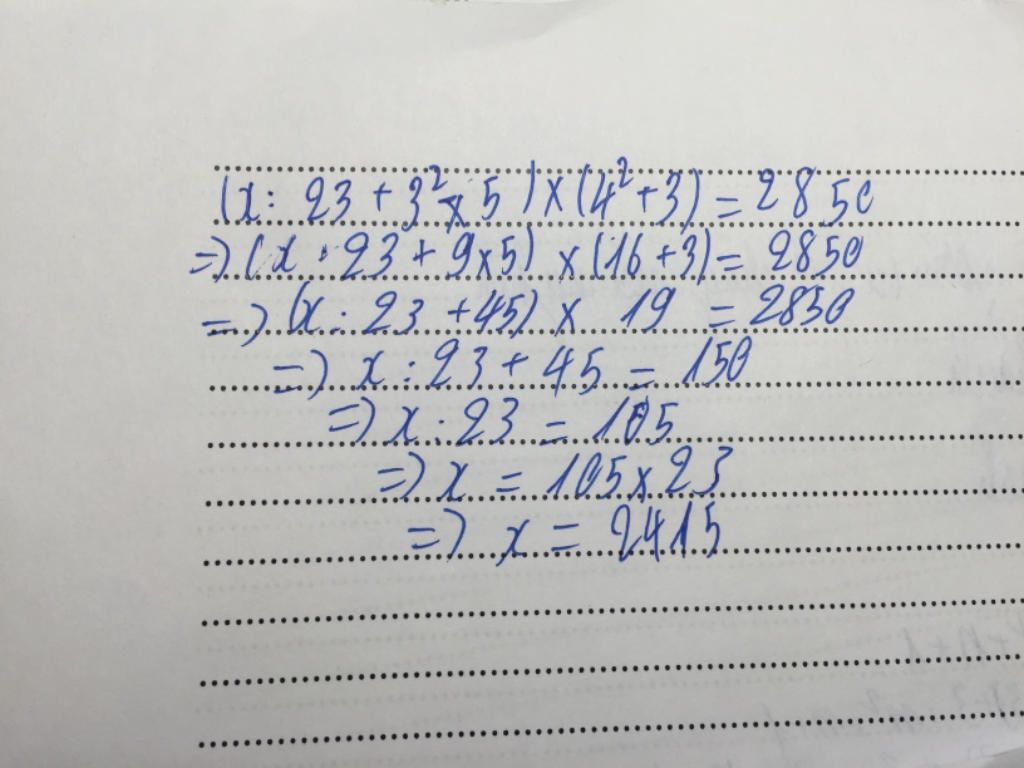 (x : 23 + 3² x 5) x (4² + 3) = 2850
=) (x : 23 + 9 x 5) x (16 + 3) = 2850
=) (x : 23 + 45) x 19 = 2850
=) x : 23 + 45 = 150
=) x : 23 = 105
=) x = 105 x 23
=) x = 2415